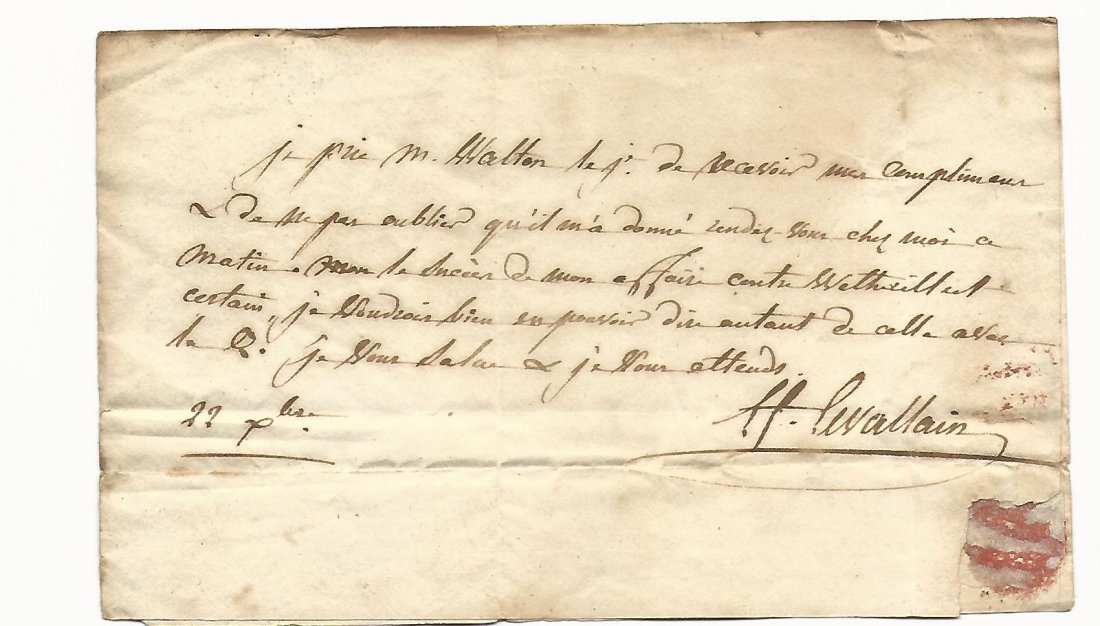 je prie M. Walton le jᵉ. de recevoir mes complimens
& de ne pas oublier qu'il m'a donné rendez-vous chez moi ce
matin. le succès de mon affaire contre Wetherill est
certain, je voudrois bien en pouvoir dire autant de celle avec
la Q. je vous salue & je vous attends.
22 xbre.
Levallain